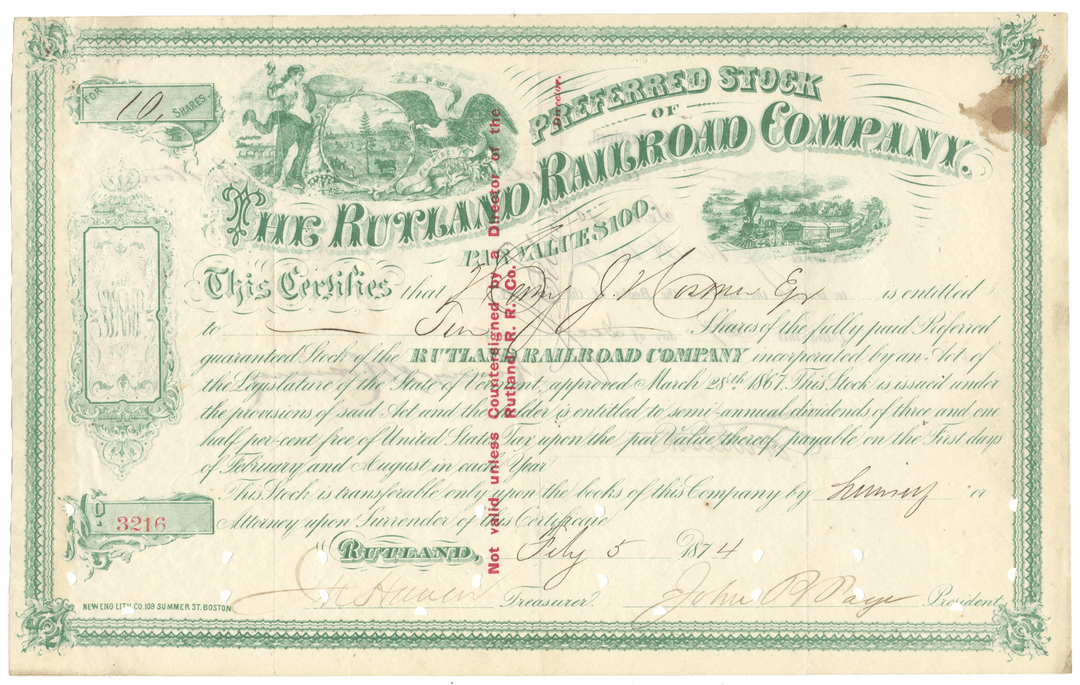 FOR 10, SHARES
PREFERRED STOCK
OF
THE RUTLAND RAILROAD COMPANY.
PAR VALUE $100.
This Certifies that Henry J. Hosmer Esq is entitled
to Ten Shares of the fully paid Preferred
guaranteed Stock of the RUTLAND RAILROAD COMPANY incorporated by an Act of
the Legislature of the State of Vermont, approved March 28th 1867. This Stock is issued under
the provisions of said Act and the Holder is entitled to semi-annual dividends of three and one
half per-cent free of United States Tax upon the par Value thereof, payable on the First days
of February and August in each Year
This Stock is transferable only upon the books of this Company by or
Attorney upon Surrender of this Certificate
P
3216
RUTLAND, 5 1874
Treasurer. John B Page President
NEW ENG LITH CO. 109 SUMMER ST. BOSTON
Not valid unless Countersigned by a Director of the
Rutland R. R. Co. Director.